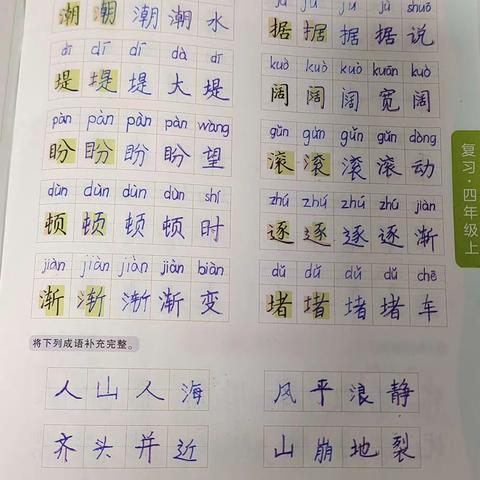 潮 潮 潮 潮 水
dī dī dī dà dī
堤 堤 堤 大 堤
pàn pàn pàn pàn wàng
盼 盼 盼 盼 望
dùn dùn dùn dùn shí
顿 顿 顿 顿 时
jiàn jiàn jiàn jiàn biàn
渐 渐 渐 渐 变
jù jù jù jù shuō
据 据 据 据 说
kuò kuò kuò kuān kuò
阔 阔 阔 宽 阔
gǔn gǔn gǔn gǔn dòng
滚 滚 滚 滚 动
zhú zhú zhú zhú jiàn
逐 逐 逐 逐 渐
dǔ dǔ dǔ dǔ chē
堵 堵 堵 堵 车
复习·四年级上
将下列成语补充完整。
人 山 人 海
风 平 浪 静
齐 头 并 近
山 崩 地 裂